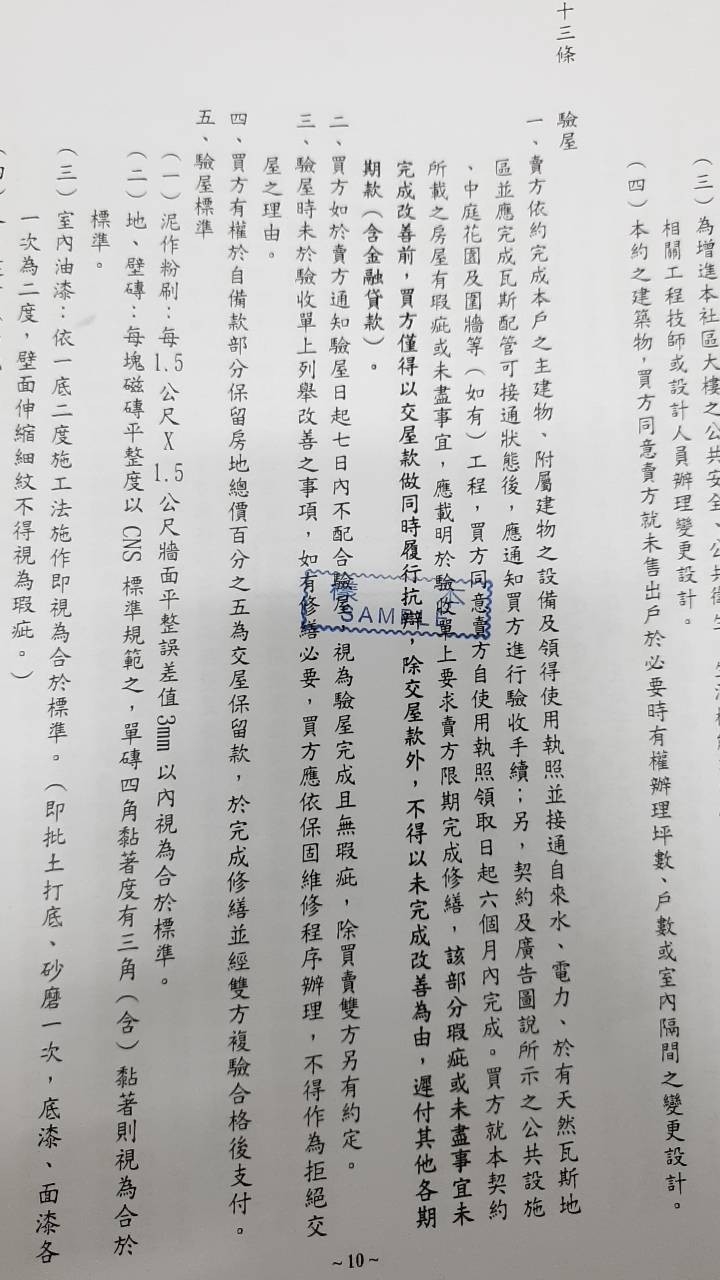 (三)為增進本社區大樓之公共安全、公共衛生
相關工程技師或設計人員辦理變更設計。
(四)本約之建築物,買方同意賣方就未售出戶於必要時有權辦理坪數、戶數或室內隔間之變更設計。
十三條
驗屋
一、賣方依約完成本戶之主建物、附屬建物之設備及領得使用執照並接通自來水、電力、於有天然瓦斯地
區並應完成瓦斯配管可接通狀態後,應通知買方進行驗收手續;另,契約及廣告圖說所示之公共設施
、中庭花園及圍牆等(如有)工程,買方同意賣方自使用執照領取日起六個月內完成。買方就本契約
所載之房屋有瑕疵或未盡事宜,應載明於驗收單上要求賣方限期完成修繕,該部分瑕疵或未盡事宜未
完成改善前,買方僅得以交屋款做同時履行抗辯,除交屋款外,不得以未完成改善為由,遲付其他各期
期款(含金融貸款)。
二、買方如於賣方通知驗屋日起七日內不配合驗屋,視為驗屋完成且無瑕疵,除買賣雙方另有約定。
三、驗屋時未於驗收單上列舉改善之事項,如有修繕必要,買方應依保固維修程序辦理,不得作為拒絕交
屋之理由。
四、買方有權於自備款部分保留房地總價百分之五為交屋保留款,於完成修繕並經雙方複驗合格後支付。
五、驗屋標準
(一)泥作粉刷:每1.5公尺X1.5公尺牆面平整誤差值3mm以內視為合於標準。
(二)地、壁磚:每塊磁磚平整度以CNS標準規範之,單磚四角黏著度有三角(含)黏著則視為合於
標準。
(三)室內油漆:依一底二度施工法施作即視為合於標準。(即批土打底、砂磨一次,底漆、面漆各
一次為二度,壁面伸縮細紋不得視為瑕疵。)
樣本
SAMPLE
~10~